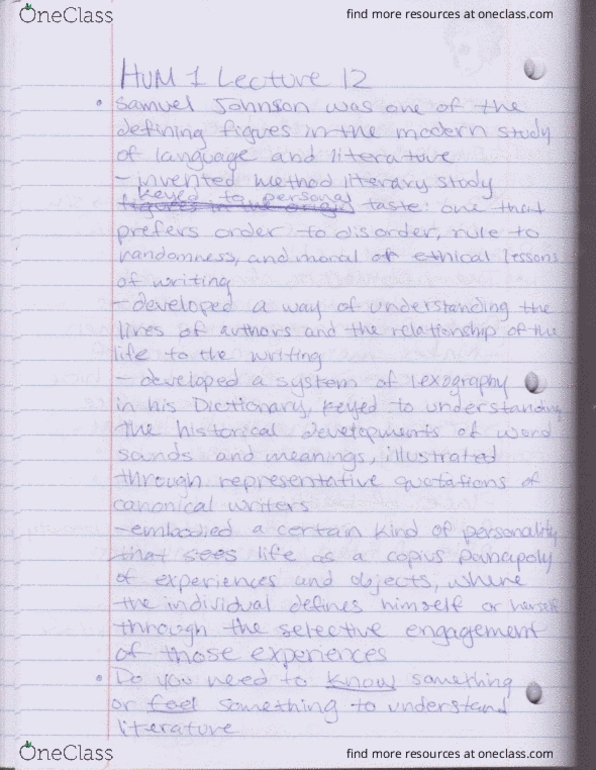 OneClass
find more resources at oneclass.com
HUM 1 Lecture 12
• Samuel Johnson was one of the
defining figures in the modern study
of language and literature
- invented method literary study
keyed to personal
figures in the origin taste: one that
prefers order to disorder, rule to
randomness, and moral or ethical lessons
of writing
- developed a way of understanding the
lives of authors and the relationship of the
life to the writing
- developed a system of lexography
in his Dictionary, keyed to understanding
the historical developments of word
sounds and meanings, illustrated
through representative quotations of
canonical writers
- embodied a certain kind of personality
that sees life as a copius panapoly
of experiences and objects, where
the individual defines himself or herself
through the selective engagement
of those experiences
• Do you need to know something
or feel something to understand
literature
OneClass
find more resources at oneclass.com